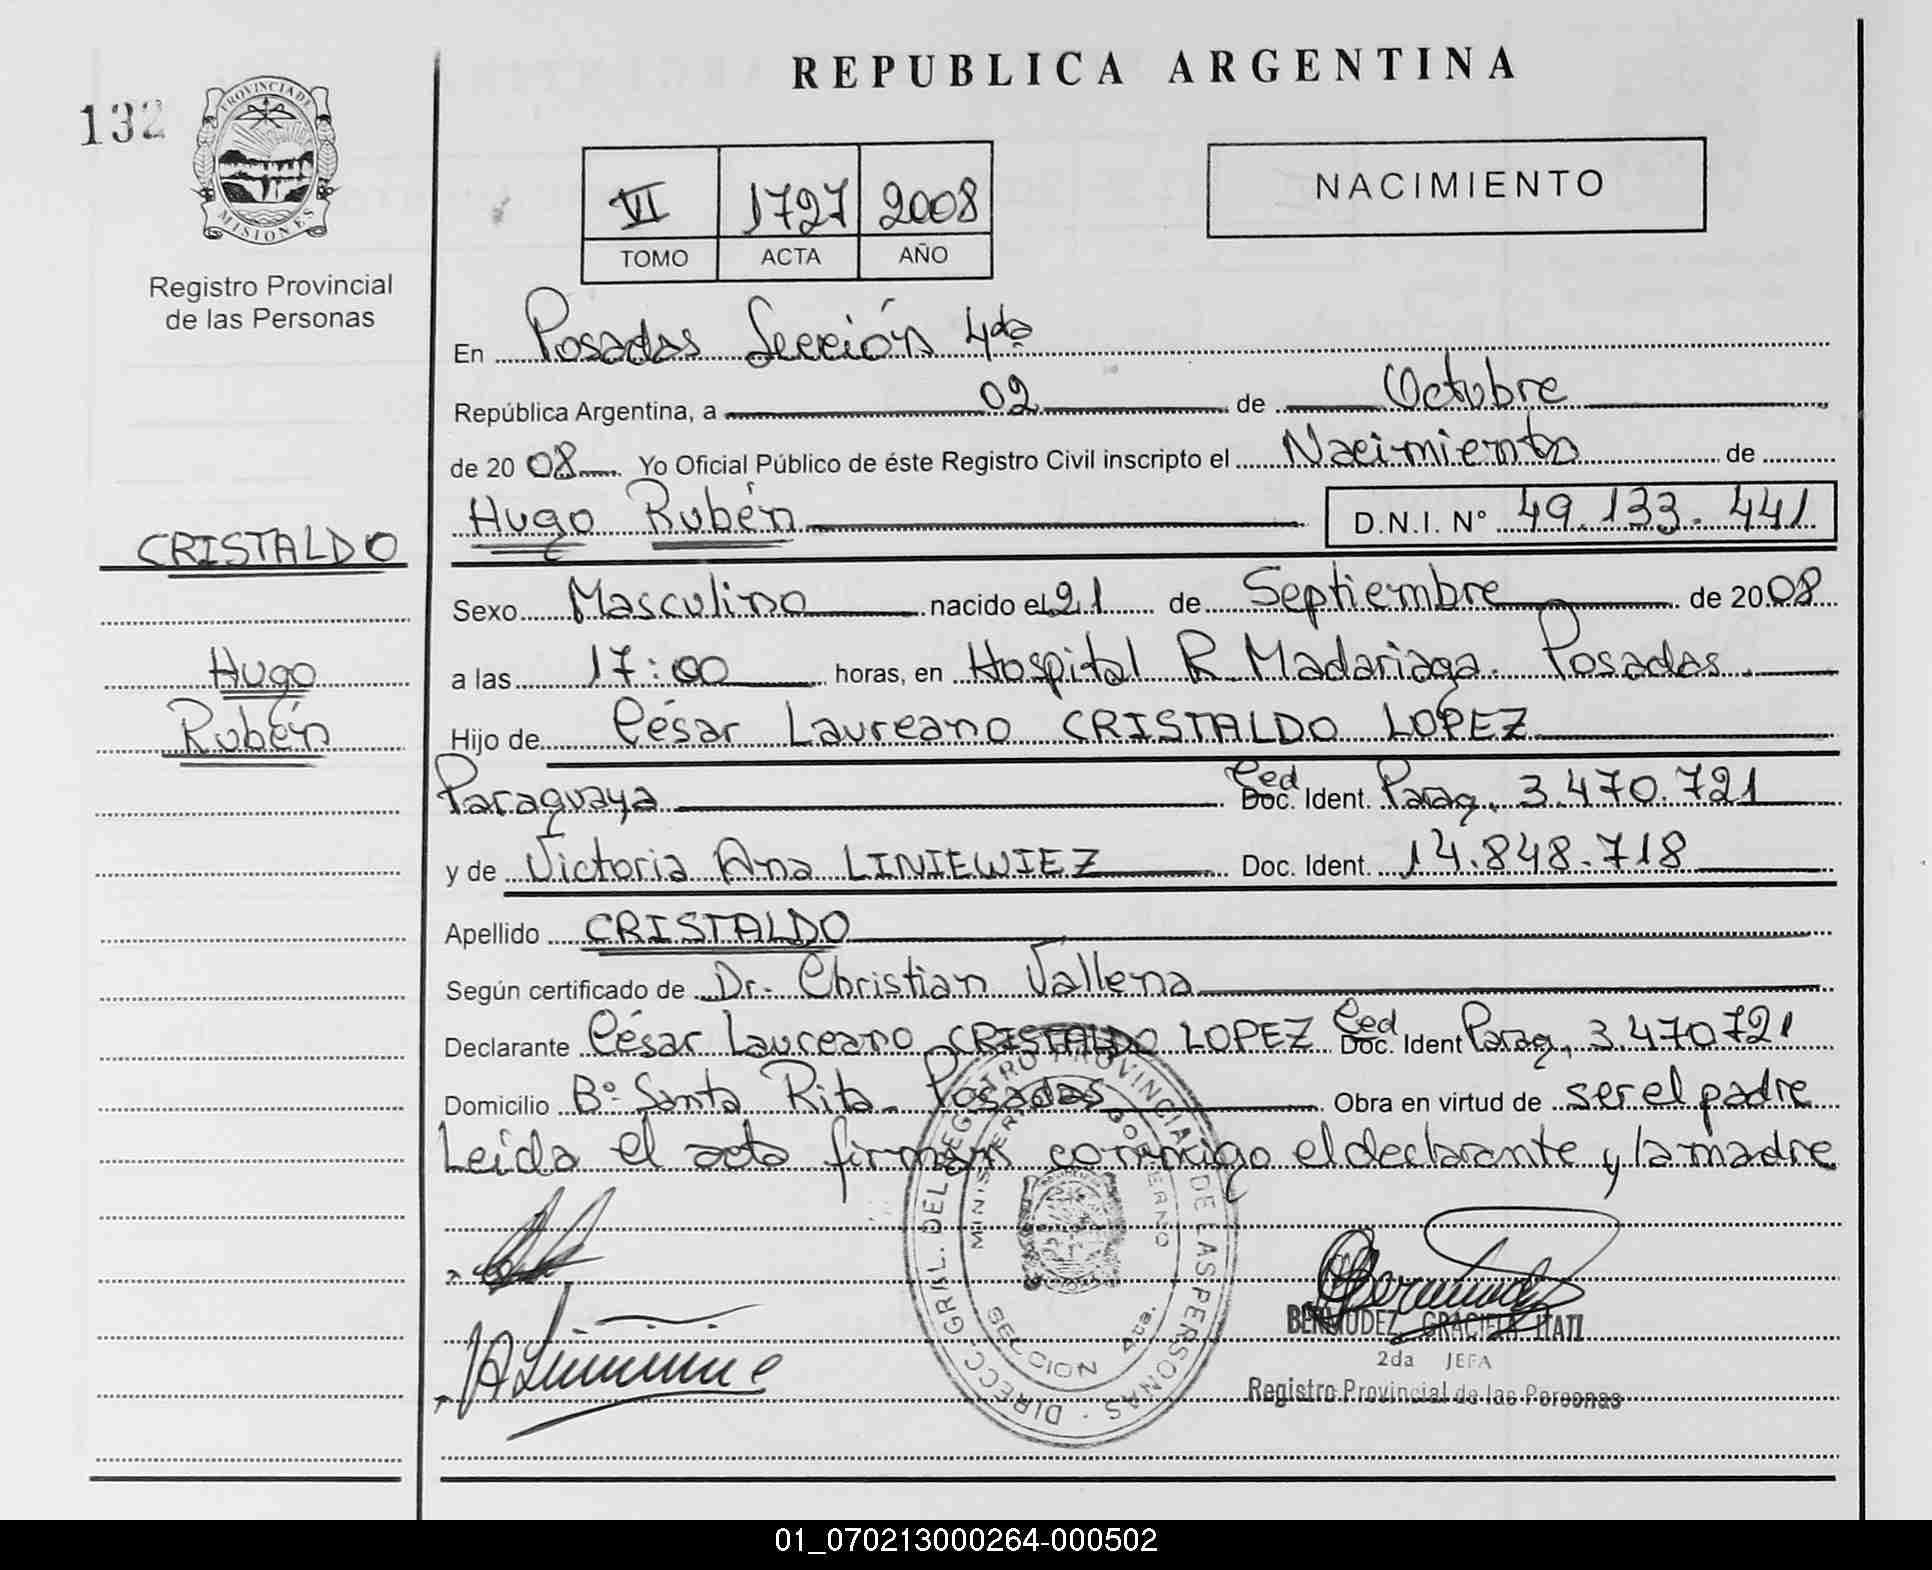 REPUBLICA ARGENTINA
132
PROVINCIA DE
MISIONES
Registro Provincial
de las Personas
VI 1727 2008
TOMO ACTA AÑO
NACIMIENTO
En Posadas Sección 4da
República Argentina, a 02 de Octubre
de 20 08 Yo Oficial Público de éste Registro Civil inscripto el Nacimiento de
Hugo Rubén D.N.I. N° 49.133.441
CRISTALDO
Hugo
Rubén
Sexo Masculino nacido el 21 de Septiembre de 2008
a las 17:00 horas, en Hospital R. Madariaga. Posadas.
Hijo de César Laureano CRISTALDO LOPEZ
Paraguaya Ced Doc. Ident. Parag. 3.470.721
y de Victoria Ana LINIEWIEZ Doc. Ident. 14.848.718
Apellido CRISTALDO
Según certificado de Dr. Christian Vallena
Declarante César Laureano CRISTALDO LOPEZ Ced Doc. Ident Parag. 3.470721
Domicilio B°: Santa Rita. Posadas Obra en virtud de ser el padre
Leída el acta firman conmigo el declarante y la madre
DIRECC. GRAL. DEL REGISTRO PROVINCIAL DE LAS PERSONAS
MINISTERIO GOBIERNO
SECCION 4ta.
BERMUDEZ GRACIELA ITATI
2da JEFA
Registro Provincial de las Personas
01_070213000264-000502